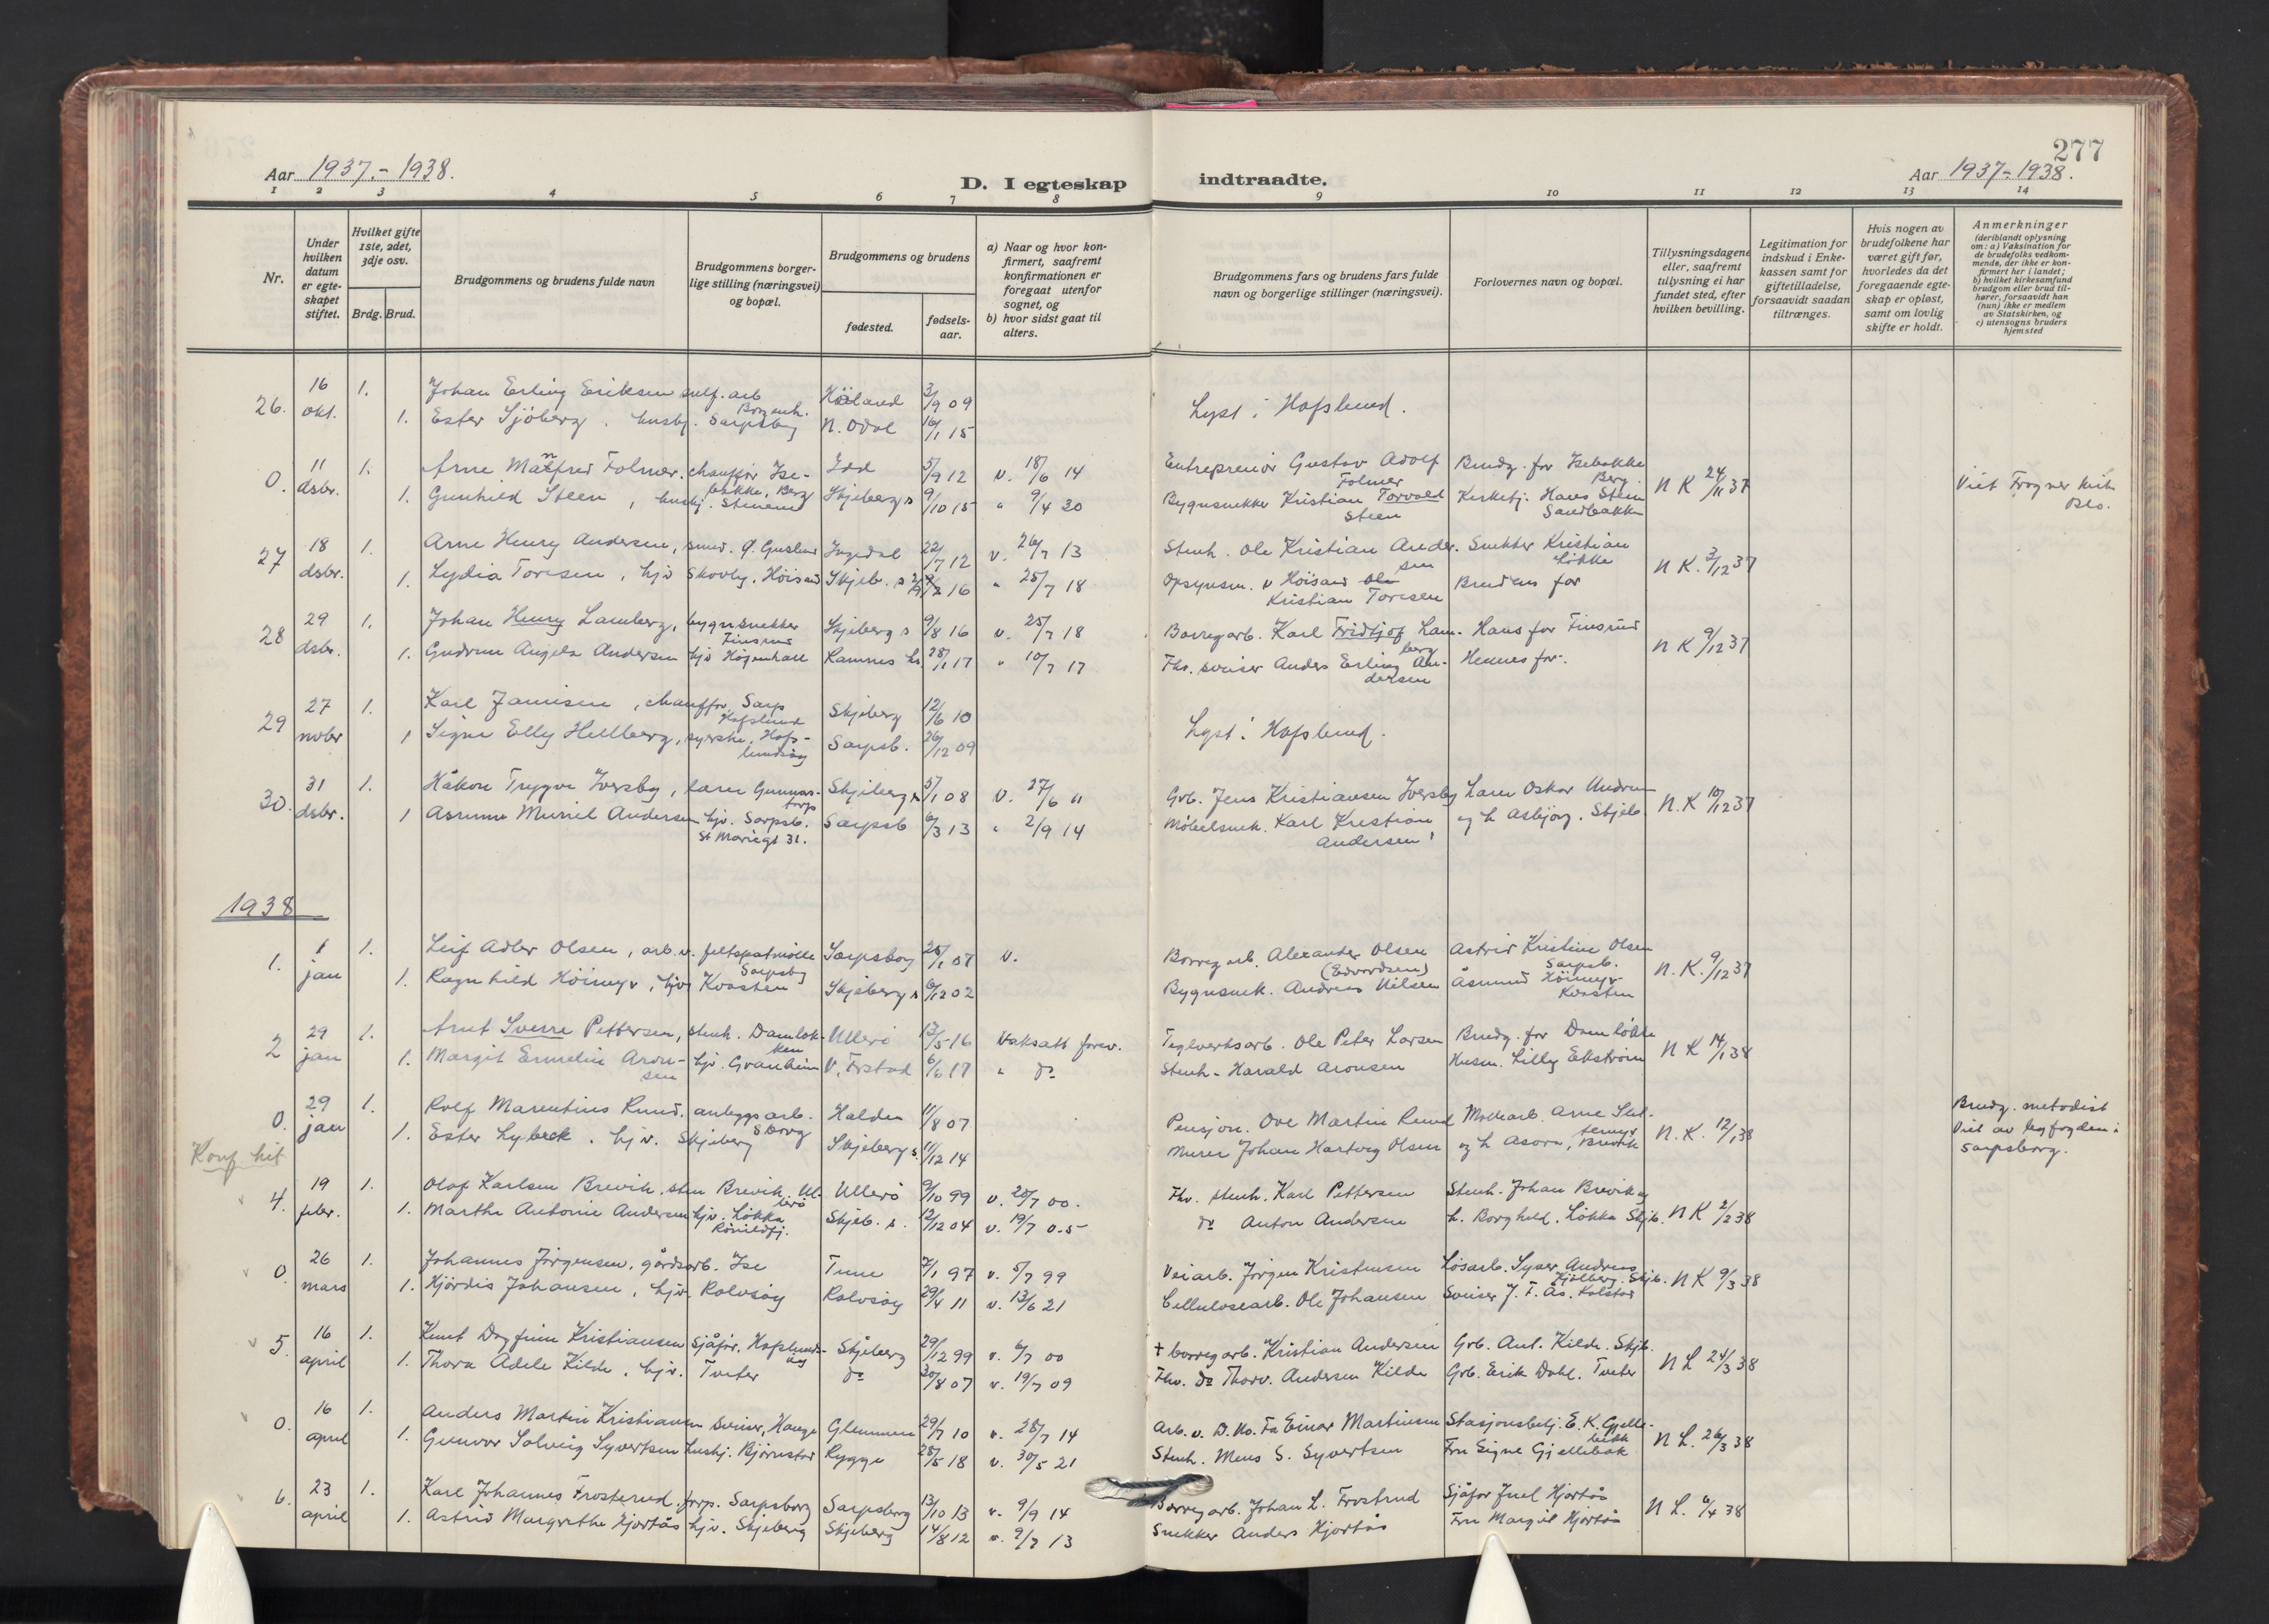 277
Aar 1937.-1938.
D. I egteskap
indtraadte.
Aar 1937-1938.
1 2 3 4 5 6 7 8 9 10 11 12 13 14
Nr.
Under hvilken datum er egteskapet stiftet.
Hvilket gifte 1ste, 2det, 3dje osv.
Brdg. Brud.
Brudgommens og brudens fulde navn
Brudgommens borgerlige stilling (næringsvei) og bopæl.
Brudgommens og brudens
fødested.
fødselsaar.
a) Naar og hvor konfirmert, saafremt konfirmationen er foregaat utenfor sognet, og
b) hvor sidst gaat til alters.
Brudgommens fars og brudens fars fulde navn og borgerlige stillinger (næringsvei).
Forlovernes navn og bopæl.
Tillysningsdagene eller, saafremt tillysning ei har fundet sted, efter hvilken bevilling.
Legitimation for indskud i Enkekassen samt for giftetilladelse, forsaavidt saadan tiltrænges.
Hvis nogen av brudefolkene har været gift før, hvorledes da det foregaaende egteskap er opløst, samt om lovlig skifte er holdt.
Anmerkninger
(deriblandt oplysning om: a) Vaksination for de brudefolks vedkommende, der ikke er konfirmert her i landet;
b) hvilket kirkesamfund brudgom eller brud tilhører, forsaavidt han (hun) ikke er medlem av Statskirken, og
c) utensogns bruders hjemsted
26. 16 okt. 1. Johan Erling Eriksen sulf. arb Borgenh. Høland 3/9 09 Lyst i Hafslund.
1. Ester Sjöberg, husbj. Sarpsborg N. Odal 16/1 15
0. 11 dsbr. 1. Arne Manfred Folmer. chauffør Isebakke, Berg Idd 5/9 12 v. 18/6 14 Entreprenør Gustav Adolf Folmer Brudg. far Isebakke Berg. N K 24/11 37 Viet Frogner kirke
1. Gunhild Steen, husbj. Stenene Skjeberg s 9/10 15 " 9/4 30 Bygnsnekker Kristian Torvald Steen Kirketj. Hans Steen Sandbakken
27 18 dsbr. 1. Arne Henry Andersen, smed. Ingedal 22/7 12 v. 26/7 13 Stenh. Ole Kristian Andersen Snekker Kristian Løkka N K. 3/12 37
1. Lydia Toresen, hjv Skovly, Høisand Skjeb. s 16 " 25/7 18 Opsynsm. v Høisand Ole Kristian Toresen Brudens far
28 29 dsbr. 1. Johan Henry Lamberg, bygnsnekker Finsrud Skjeberg s 9/8 16 v. 25/7 18 Borregarb. Karl Fridtjof Lamberg Hans far Finsrud N K 9/12 37
1. Gudrun Angela Andersen hjv Høgenhall Ramnes 28/1 17 " 10/7 17 Fhv. sveiser Anders Erling Andersen Hennes far.
29 27 nvbr 1. Karl Jamissen, chauffør, Sarp Hafslund Skjeberg 12/6 10 Lyst i Hafslund.
1 Signe Elly Hellberg, syerske, Hafslundsøy Sarpsb. 26/12 09
30. 31 dsbr. 1. Håkon Trygve Iversby, lærer Gunnarstorp Skjeberg s 5/1 08 v. 27/6 Grb. Jens Kristiansen Iversby Lærer Oskar Undrum N. K 10/12 37
1 Asrunn Muriel Andersen hjv. Sarpsb. St Mariegt 31. Sarpsb 6/3 13 " 2/9 14 Møbelsnek. Karl Kristian Andersen og h Asbjørg. Skjeb.
1938
1. 1 jan 1. Leif Adler Olsen, arb. v. feltspatmølle Sarpsbg Sarpsborg 25/1 07 v. Borreg arb. Alexander Olsen (Edvardsen) Astrid Kristine Olsen Sarpsb. N. K. 9/12 37
1. Ragnhild Höimyr, hjv Kvasten Skjeberg s 6/12 02 Bygnsnek. Andreas Nilsen Åsmund Höimyr Kvasten
2 29 jan 1. Arnt Sverre Pettersen, stenh. Damløkken Ullerø 13/5 16 Vaksatt forev. Teglverksarb. Ole Peter Larsen Brudg. far Damløkke N K 14/1 38
1. Margit Ermelin Aronsen hjv. Granheim V. Frstad 6/6 17 " do Stenh. Harald Aronsen Husm. Lilly Ekstrøm
0. 29 jan 1. Rolf Marentius Rund. anleggsarb. Sborg Halden 11/8 07 Pensjon. Ove Martin Rund Mollearb. Arne N. K. 12/1 38 Brudg. metodist
1. Ester Lybeck. hjv. Skjeberg Skjeberg s. 11/12 14 Murer Johan Hartvig Olsen og h Asora, Brevik Viet av byfogden i Sarpsborg.
Konf hit
4. 19 febr. 1. Olaf Karlsen Brevik, sten Brevik, Ullerö Ullerö 9/10 99 v. 20/7 00. Fhv. stenh. Karl Pettersen Stenh. Johan Brevik og N K 2/2 38
1. Marthe Antonie Andersen hjv. Løkka Skjeb. s. 12/12 04 v. 19/7 05 do Anton Andersen h. Borghild. Løkka Skjb.
0. 26 mars 1. Johannes Jörgensen, gårdsarb. Ise Tune 7/1 97 v. 5/7 99 Veiarb. Jörgen Kristensen Løsarb. Syver Andreas Kjølberg. Skjb. N K 9/3 38
1. Hjördis Johansen, hjv. Rolvsøy Rolvsøy 29/4 11 v. 13/6 21 Cellulosearb. Ole Johansen Sveiser J. F. Ås. Kolstad
5. 16 april 1. Knut Dagfinn Kristiansen Sjåfør. Hafslundsøy Skjeberg 29/12 99 v. 6/7 00 + borregarb. Kristian Andersen Grb. Ant. Kilde. Skjb. N L 24/3 38
1. Thora Adele Kilde, hjv. Tveter do 30/8 07 v. 19/7 09 Fhv. do Thorv. Andersen Kilde Grb. Erik Dahl. Tveter
0. 16 april 1. Anders Martin Kristiansen sveiser, Hauge Glemmen 29/7 10 v. 28/7 14 Arb. v. D. No. Fa Einar Martinsen Stasjonsbetj. E. K. Gjellebekk N L. 26/3 38
1. Gunvor Solveig Syvertsen husbj. Björnstad Rygge 28/5 18 v. 30/5 21 Stenh. Mens S. Syvertsen Fru Signe Gjellebæk
6. 23 april 1. Karl Johannes Frosterud, forp. Sarpsborg Sarpsborg 13/10 13 v. 9/9 14 Borregarb. Johan L. Frostrud Sjåfør Juel Hjortås N L. 6/4 38
1. Astrid Margrethe Hjortås hjv. Skjeberg Skjeberg 14/8 12 v. 9/7 13 Snekker Anders Hjortås Fru Margit Hjortås